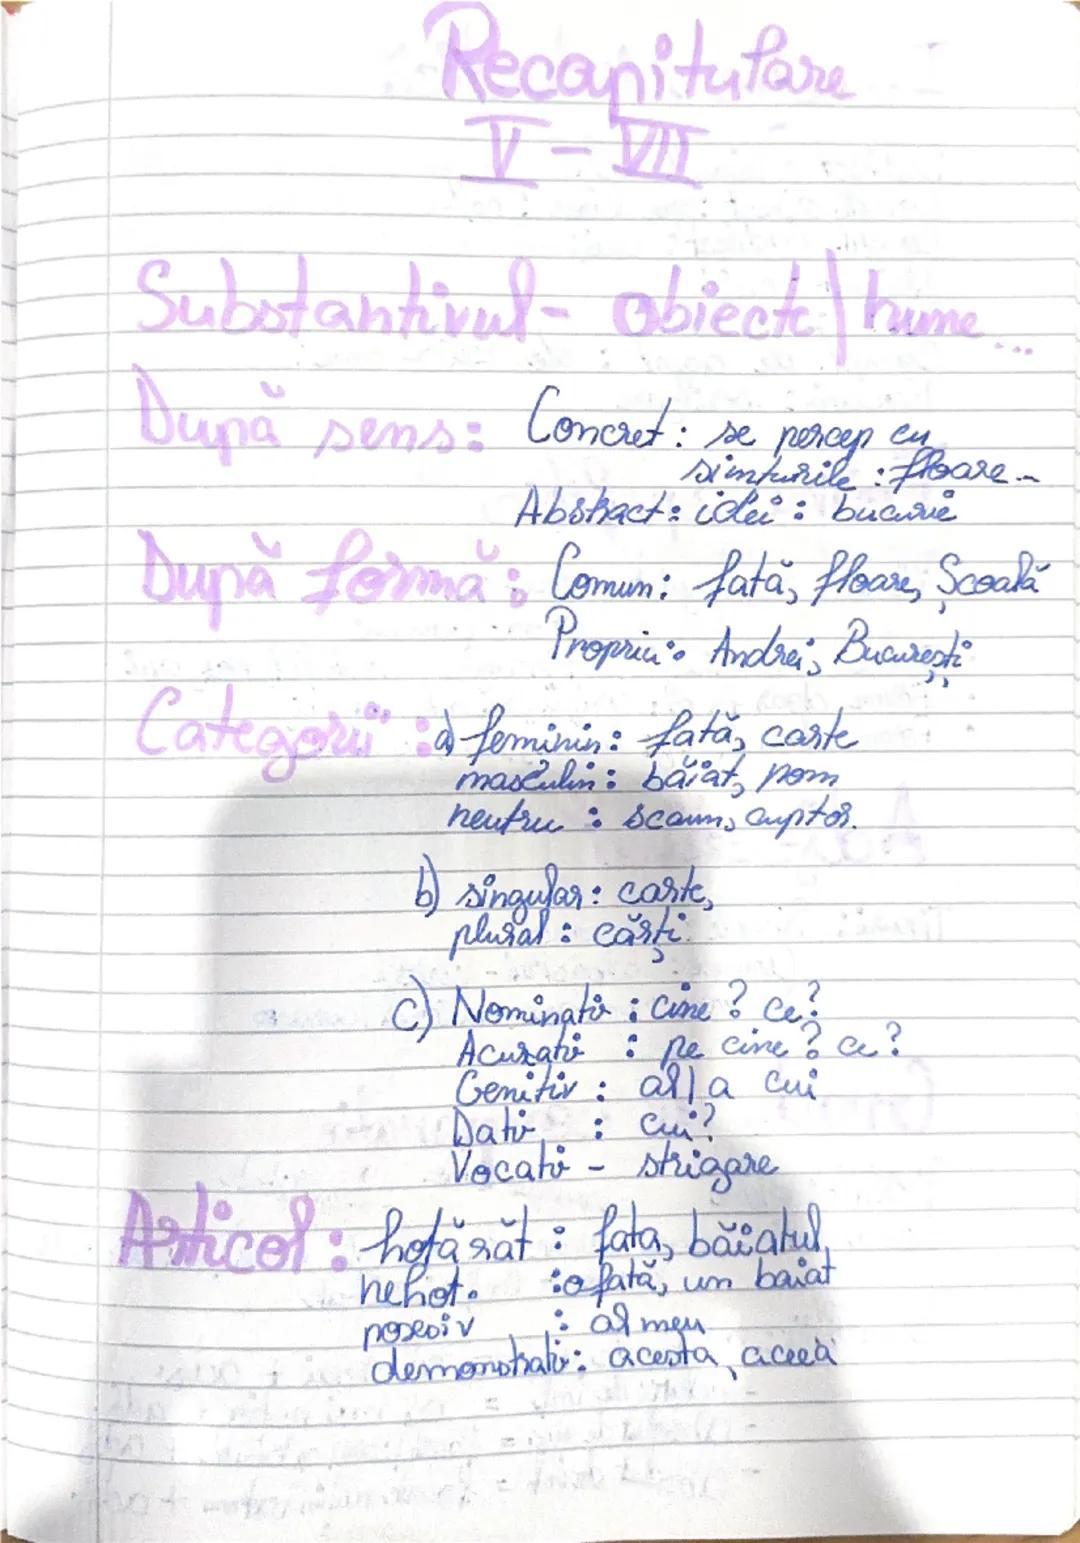 Recapitulare
V - VII
Substantivul - obiecte / nume...
După sens: Concret: se percep cu
simturile: floare...
Abstract: idei: bucurie
După formă: Comun: fată, floare, Școală
Propriu: Andrei, București
Categorii: a) feminin: fată, carte
masculin: băiat, pom
neutru: scaun, cuptor.
b) singular: carte,
plural: cărți.
c) Nominativ: cine? ce?
Acuzativ: pe cine? ce?
Genitiv: al/a cui
Dativ: cui?
Vocativ - strigare
Articol: hotărăt: fata, băiatul,
nehot.: o fată, un baiat
posesiv: al meu
demonstrativ: acesta, aceea